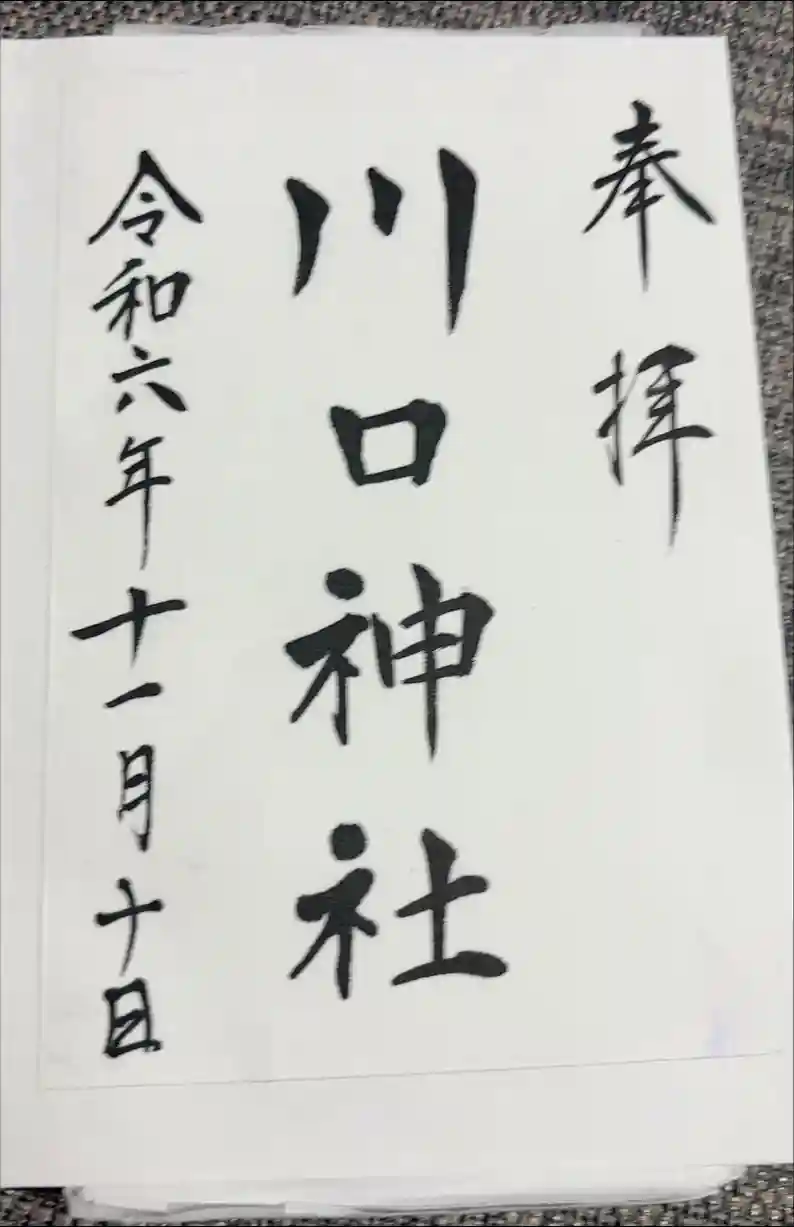 奉拝
川口神社
令和六年十一月十日